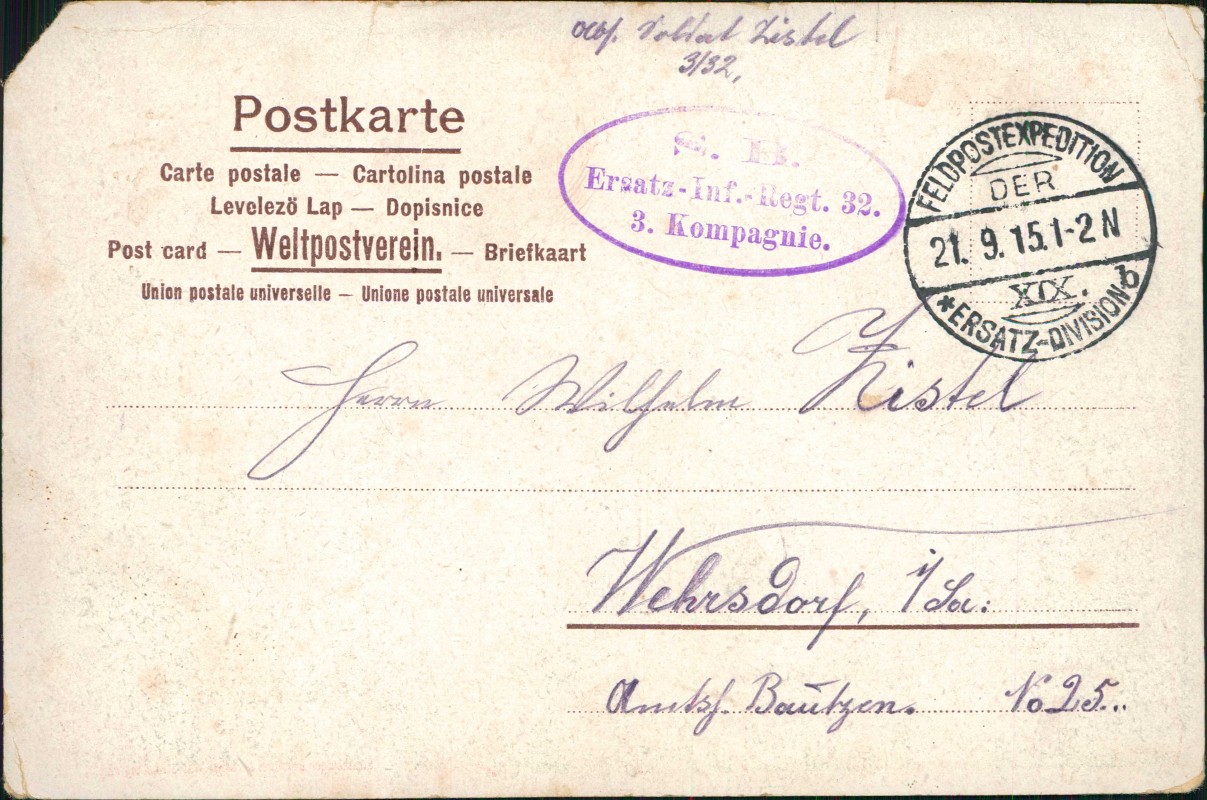 Abs. Soldat Zistel
3/32.
Postkarte
Carte postale — Cartolina postale
Levelező Lap — Dopisnice
Post card — Weltpostverein. — Briefkaart
Union postale universelle — Unione postale universale
S. B.
Ersatz-Inf.-Regt. 32.
3. Kompagnie.
FELDPOSTEXPEDITION
DER
21. 9. 15. 1-2 N
XIX.
*ERSATZ-DIVISION b
Herrn Wilhelm Zistel
Wehrsdorf, i/Sa:
Amtsh. Bautzen. No 25..